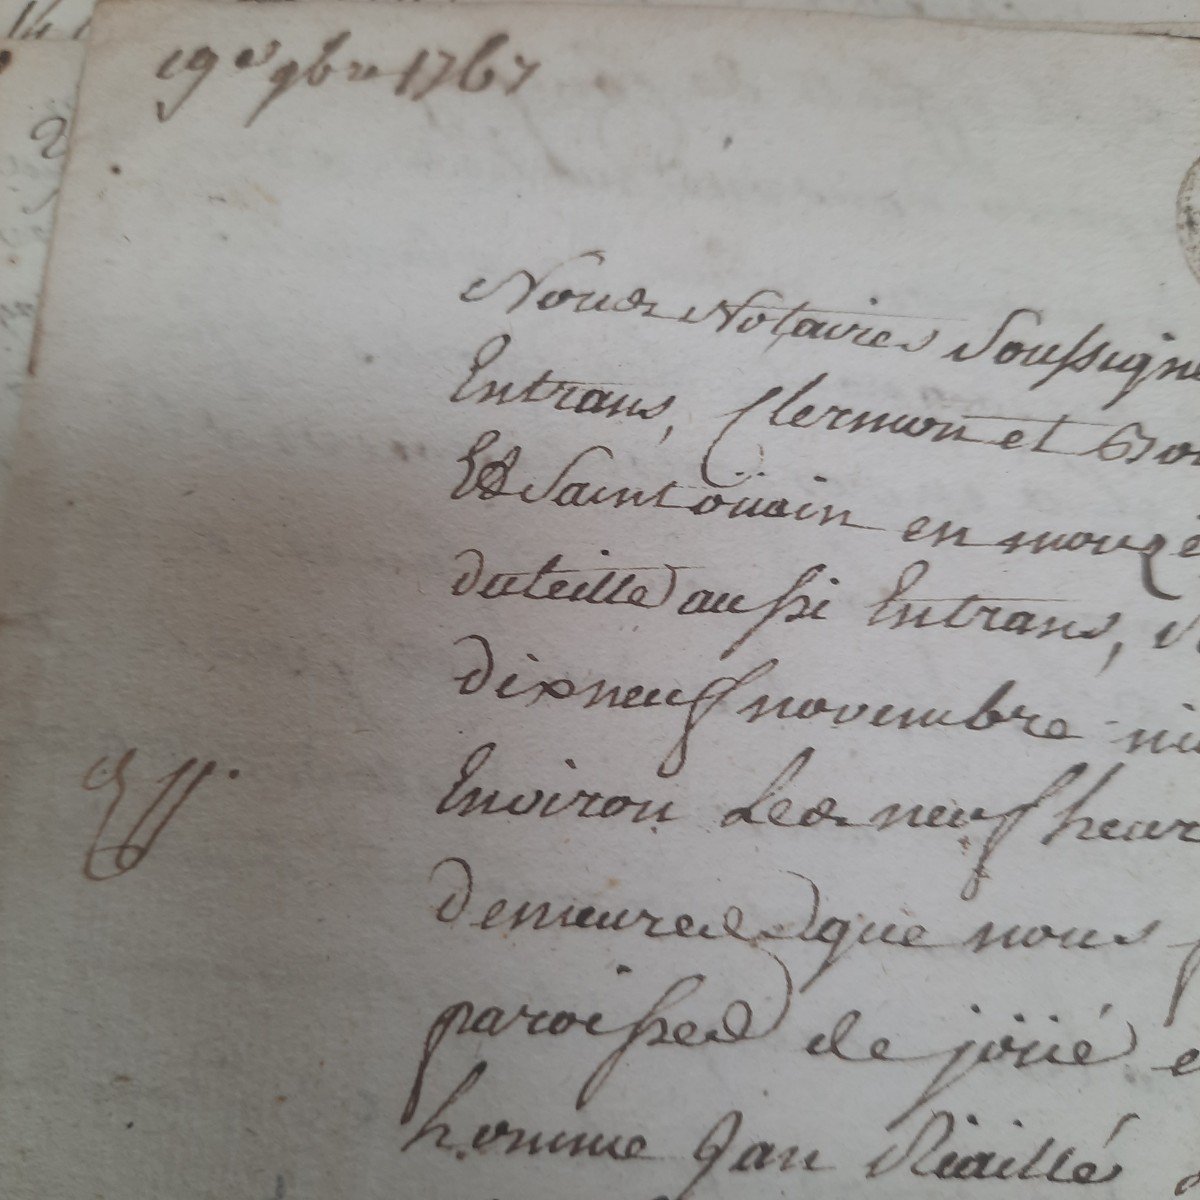 19e 9bre 1767
Nous Notaires Soussigne
Entrans, Clermon et
Et Saint oüain en mouze
dateille aussi Entrans,
dixneuf novembre mi
Environ Les neuf heur
demeures que nous
paroisses de joüé e
homme Jan Riaillé